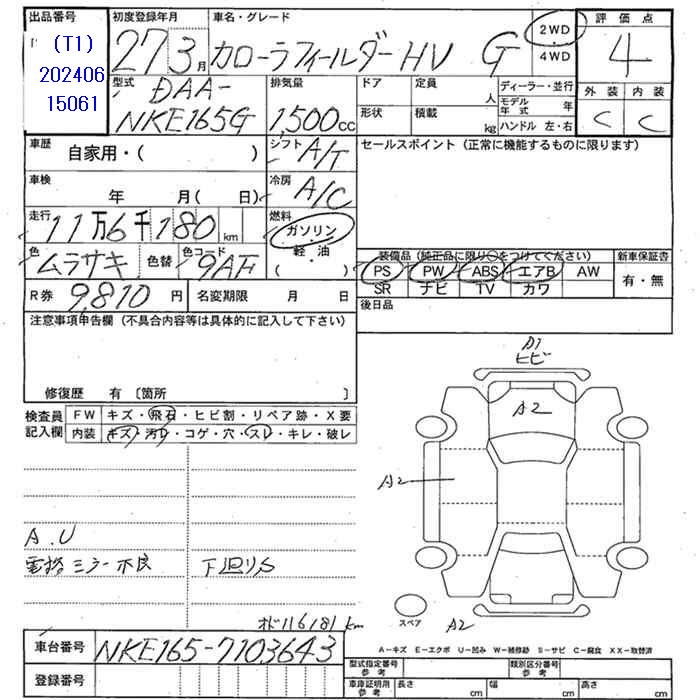 出品番号 初度登録年月 車名・グレード 2WD 評価点
(T1) 27 3月 カローラフィールダーHV G 4WD 4
202406 型式 排気量 ドア 定員 ディーラー・並行 外装 内装
15061 DAA- 人 モデル年式 年 C C
NKE165G 1,500cc 形状 積載 kg ハンドル 左・右
車歴 シフト セールスポイント(正常に機能するものに限ります)
自家用・( ) A/T
車検 冷房
年 月( 日) A/C
走行 燃料
11万6千180km ガソリン
色 色替 色コード 軽・油 装備品(純正品に限り○をつけてください) 新車保証書
ムラサキ 9AF ( ) PS PW ABS エアB AW 有・無
R券 9,810円 名変期限 月 日 SR ナビ TV カワ
注意事項申告欄(不具合内容等は具体的に記入して下さい) 後日品
A1
ヒビ
修復歴 有〔箇所 〕
A2
検査員 FW キズ・飛石・ヒビ割・リペア跡・X要
記入欄 内装 キズ・汚レ・コゲ・穴・スレ・キレ・破レ
A2
A.U
電格ミラー不良 下廻りS
オド116181km スペア A2
車台番号 NKE165-7103643 A-キズ E-エクボ U-凹み W-補修跡 S-サビ C-腐食 XX-取替済
登録番号 型式指定番号 参考 類別区分番号 参考
車庫証明用 参考 長さ cm 幅 cm 高さ cm